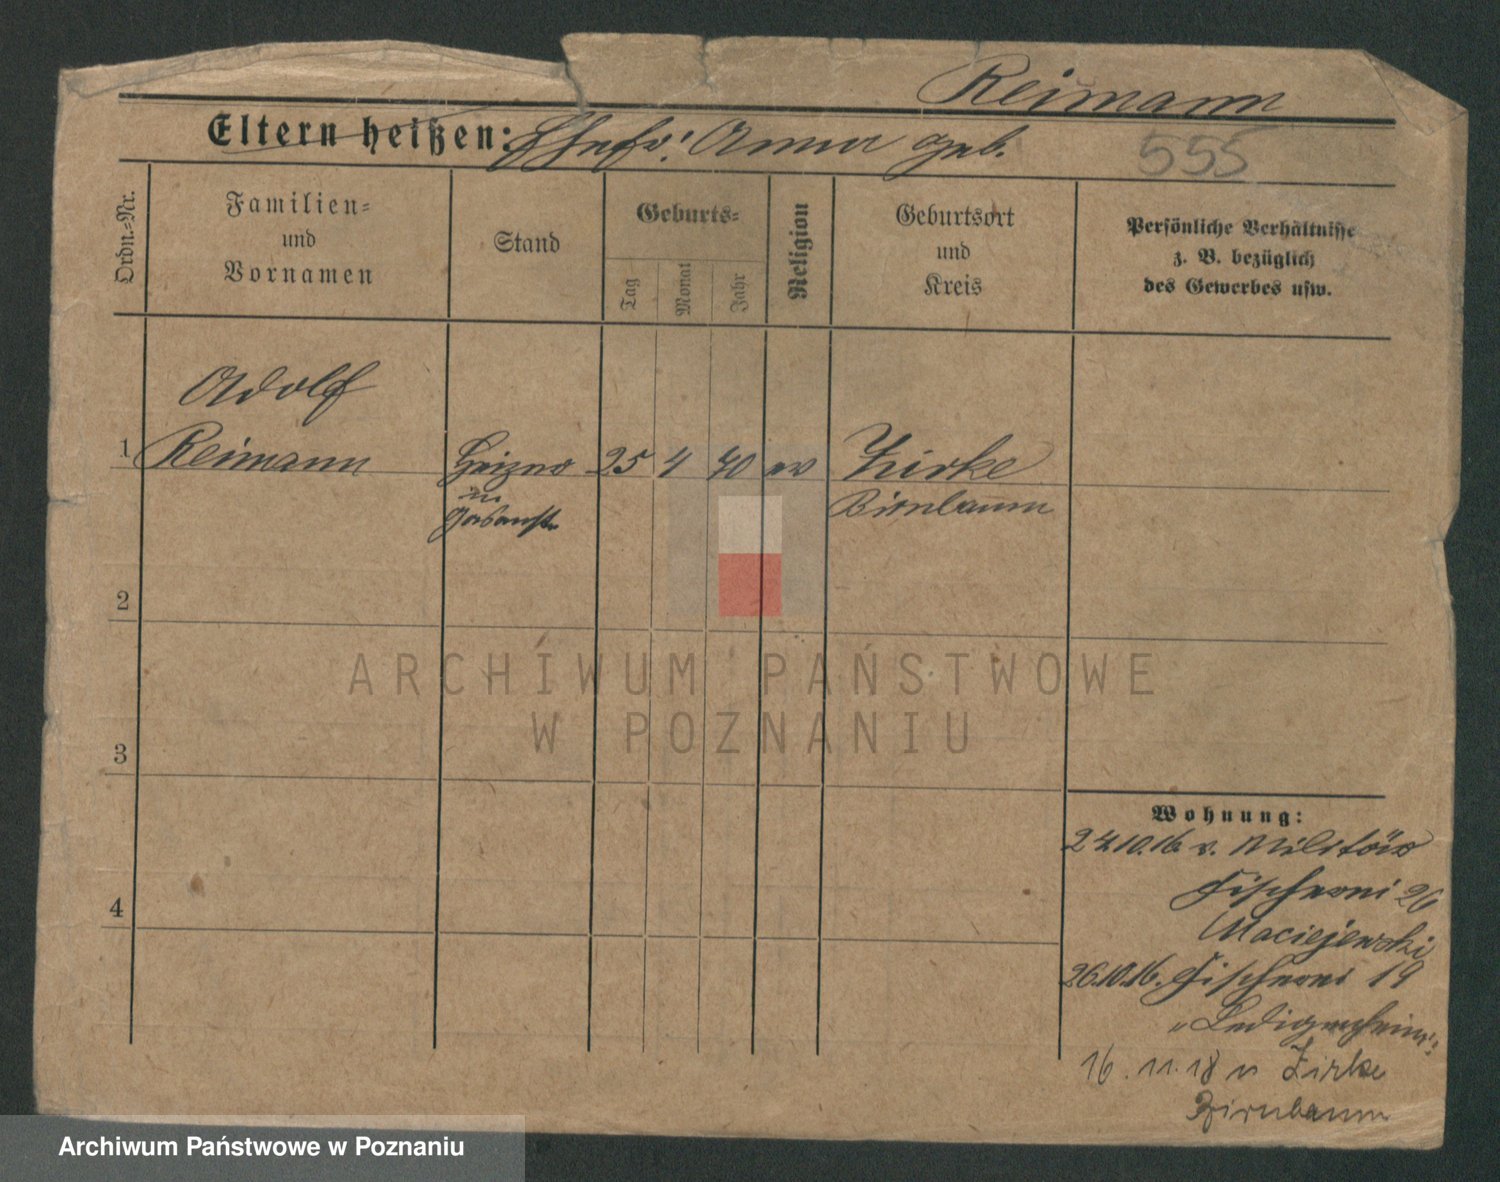 Reimann
Eltern heißen: Ehefr: Anna geb.
555
Ordn.=Nr.
Familien=
und
Vornamen
Stand
Geburts=
Tag
Monat
Jahr
Religion
Geburtsort
und
Kreis
Persönliche Verhältnisse
z. B. bezüglich
des Gewerbes usw.
Adolf
1 Reimann Heizer 25 4 70 ev Zirke
in Birnbaum
2
3
4
Wohnung:
24.10.16 v. Militär
Fischerei 26
Maciejewski
26.10.16. Fischerei 19
"Ledigenheim"
16.11.18 n Zirke
Birnbaum
ARCHIWUM PAŃSTWOWE
W POZNANIU
Archiwum Państwowe w Poznaniu